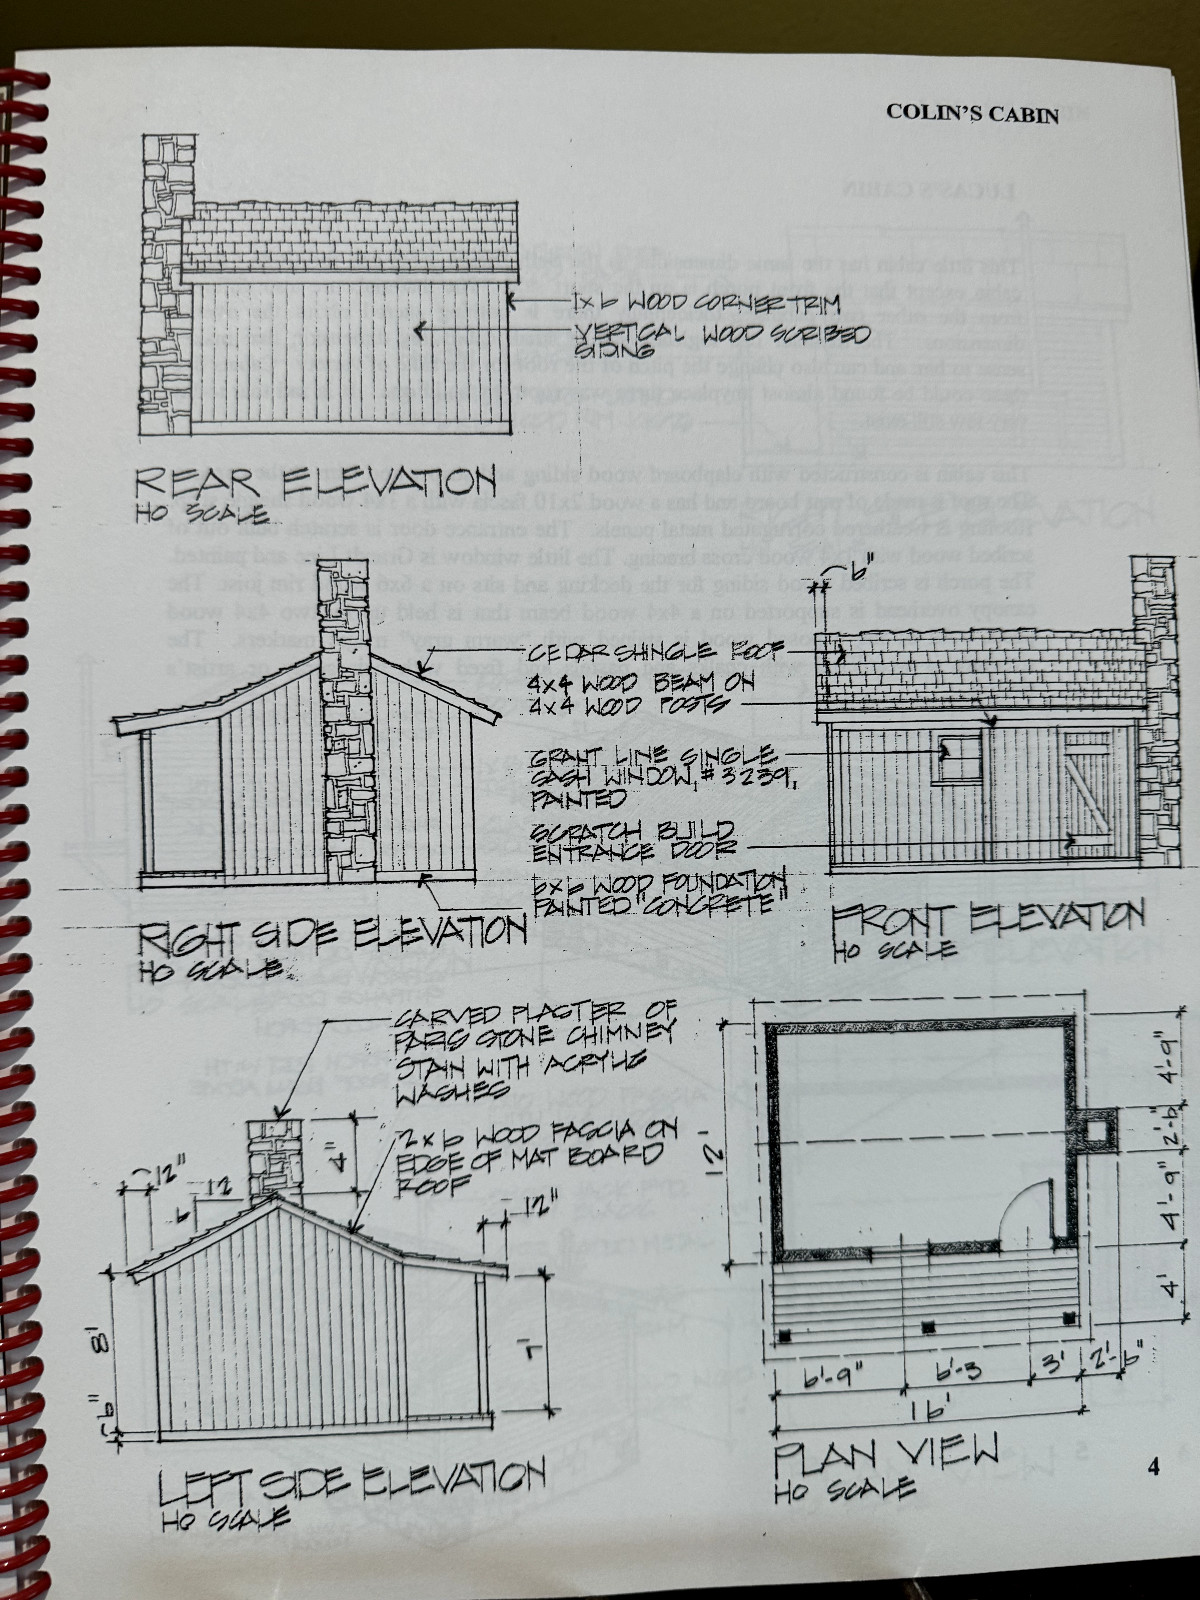 COLIN'S CABIN
1x6 WOOD CORNER TRIM
VERTICAL WOOD SCRIBED
SIDING
REAR ELEVATION
HO SCALE
6"
CEDAR SHINGLE ROOF
4x4 WOOD BEAM ON
4x4 WOOD POSTS
GRANT LINE SINGLE
SASH WINDOW, #3239,
PAINTED
SCRATCH BUILD
ENTRANCE DOOR
6x6 WOOD FOUNDATION
PAINTED "CONCRETE"
RIGHT SIDE ELEVATION
HO SCALE
FRONT ELEVATION
HO SCALE
CARVED PLASTER OF
PARIS STONE CHIMNEY
STAIN WITH ACRYLIC
WASHES
2x6 WOOD FASCIA ON
EDGE OF MAT BOARD
ROOF
12"
12
6
4"
12"
8'
6"
7'
LEFT SIDE ELEVATION
HO SCALE
12'
4'-9"
2'-6"
4'-9"
4'
6'-9"
6'-3
3'
2'-6"
16'
PLAN VIEW
HO SCALE
4